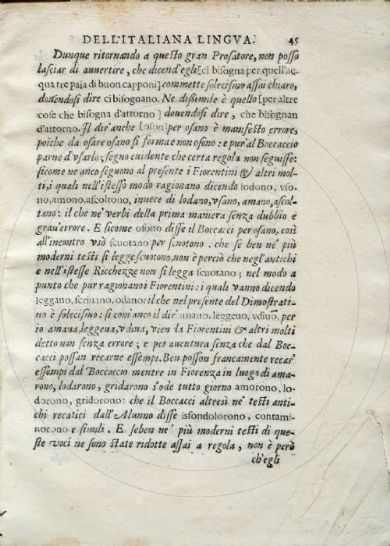 DELL'ITALIANA LINGVA. 45
Dunque ritornando a questo gran Prosatore, non posso
lasciar di auuertire, che dicend'egli [ci bisogna per quell'ac
qua tre paia di buon capponi] commette solecismo assai chiaro,
douendosi dire ci bisognano. Ne dissimile è quello [per altre
cose che bisogna d'attorno] douendosi dire, che bisognan
d'attorno. Il dir'anche [oson] per osano è manifesto errore,
poiche da osare osano si forma e non osono: e pur'al Boccaccio
parue d'vsarlo; segno euidente che certa regola non seguisse:
sicome ne anco seguono al presente i Fiorentini & altri mol-
ti, i quali nell'istesso modo ragionano dicendo lodono, vso
no, amono, ascoltono, inuece di lodano, vsano, amano, ascol-
tano: il che ne' verbi della prima maniera senza dubbio è
graue errore. E sicome osono disse il Boccacci per osano, così
all'incontro vsò scuotano per scuotono. che se ben ne' più
moderni testi si legge scuotono, non è perciò che negl'antichi
e nell'istesse Ricchezze non si legga scuotano; nel modo a
punto che pur ragionano i Fiorentini: i quali vanno dicendo
leggano, scriuano, odano: il che nel presente del Dimostrati-
uo è solecismo: sì com'anco il dir' amano, leggeuo, vdiuo, per
io amaua, leggeua, vdiua, vien da Fiorentini & altri molti
detto non senza errore; e per auentura senza che dal Boc-
cacci possan recarne essempi. Ben posson francamente recar'
essempi dal Boccaccio mentre in Fiorenza in luogo di ama-
rono, lodarono, gridarono s'ode tutto giorno amorono, lo-
dorono, gridorono: che il Boccacci altresì ne' testi anti-
chi recatici dall'Alunno disse isfondolorono, contami-
norono e simili. E seben ne' più moderni testi di que-
ste voci ne sono state ridotte assai a regola, non è però
ch'egli